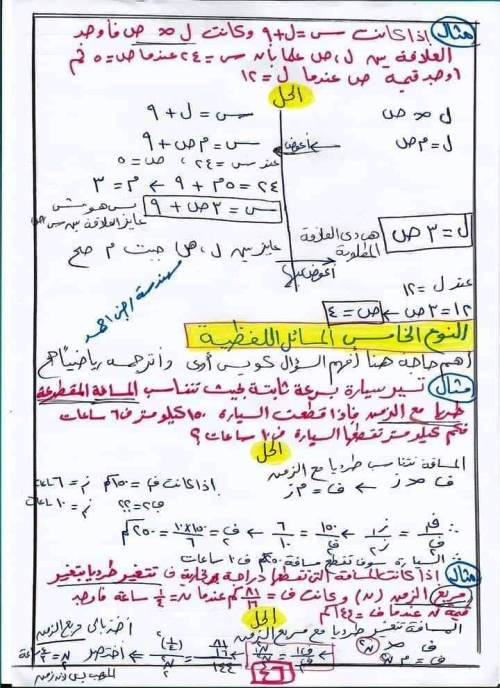 مثال إذا كانت س = ل + ٩ وكانت ل ∝ ص فأوجد
العلاقة بين ل ، ص علما بأن س = ٢٤ عندما ص = ٥ ثم
أوجد قيمة ص عندما ل = ١٢
الحل
ل ∝ ص
ل = م ص
أعوض
س = ل + ٩
س = م ص + ٩
عند س = ٢٤ ، ص = ٥
٢٤ = ٥م + ٩ ← م = ٣
س = ٣ص + ٩
بس هو مش
عايز العلاقة بين س ، ص
عايز بين ل ، ص جبت م صح
ل = ٣ ص
هي دي العلاقة
المطلوبة
عند ل = ١٢
١٢ = ٣ص ← ص = ٤
النوع الخامس المسائل اللفظية
أهم حاجة هنا أفهم السؤال كويس أوى وأترجمه رياضياً صح
مثال تسير سيارة بسرعة ثابتة بحيث تتناسب المسافة المقطوعة
طرديا مع الزمن فإذا قطعت السيارة ١٥٠ كيلومتر في ٦ ساعات
فكم كيلومتر تقطعها السيارة في ١٠ ساعات ؟
الحل
المسافة تتناسب طرديا مع الزمن
ف ∝ ز ← ف = م ز
إذا كانت ف₁ = ١٥٠كم ز₁ = ٦ ساعات
ف₂ = ؟؟ ز₂ = ١٠ ساعات
∴ ف₁/ف₂ = ز₁/ز₂ ← ١٥٠/ف₂ = ٦/١٠ ← ف₂ = ١٠×١٥٠/٦ = ٢٥٠كم
∴ السيارة سوف تقطع مسافة ٢٥٠كم في ١٠ ساعات
مثال إذا كانت المسافة التي تقطعها دراجة بخارية ف تتغير طرديا بتغير
مربع الزمن (ن) وكانت ف = ٨١/١٦ كم عندما ن = ١/٤ ساعة فأوجد
قيمة ن عندما ف = ١٤٤كم
الحل
المسافة تتغير طرديا مع مربع الزمن
ف ∝ ن²
ف = م ن²
٤٦